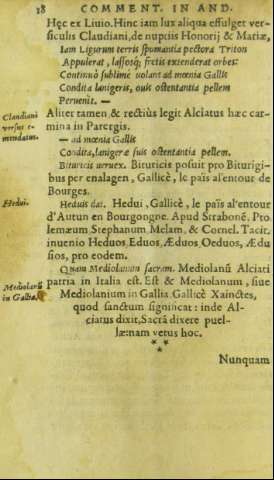 18 COMMENT. IN AND.
Hęc ex Liuio. Hinc iam lux aliqua effulget ver-
siculis Claudiani, de nuptiis Honorij & Mariæ,
Iam Ligurum terris spumantia pectora Triton
Appulerat, lassosq; fretis extenderat orbes:
Continuò sublimè volant ad mœnia Gallis
Condita lanigeris, ouis ostentantia pellem
Peruenit. —
Claudiani
versus e-
mendatus.
Aliter tamen & rectiùs legit Alciatus hæc car-
mina in Parergis.
— ad mœnia Gallis
Condita, lanigeræ suis ostentantia pellem.
Bituricis veruex. Bituricis posuit pro Biturigi-
bus per enalagen, Gallicè, le païs al'entour de
Bourges.
Hedui.
Heduis dat. Hedui, Gallicè, le païs al'entour
d'Autun en Bourgongne. Apud Strabonē, Pto-
lemæum, Stephanum, Melam, & Cornel. Tacit.
inuenio Heduos, Eduos, Æduos, Oeduos, Ædu
sios, pro eodem.
Mediolanū
in Gallia.
Quam Mediolanum sacram. Mediolanū Alciati
patria in Italia est. Est & Mediolanum, siue
Mediolanium in Gallia, Gallicè Xainctes,
quod sanctum significat: inde Al-
ciatus dixit, Sacrā dixere puel-
læ: nam vetus hoc.
* *
*
Nunquam